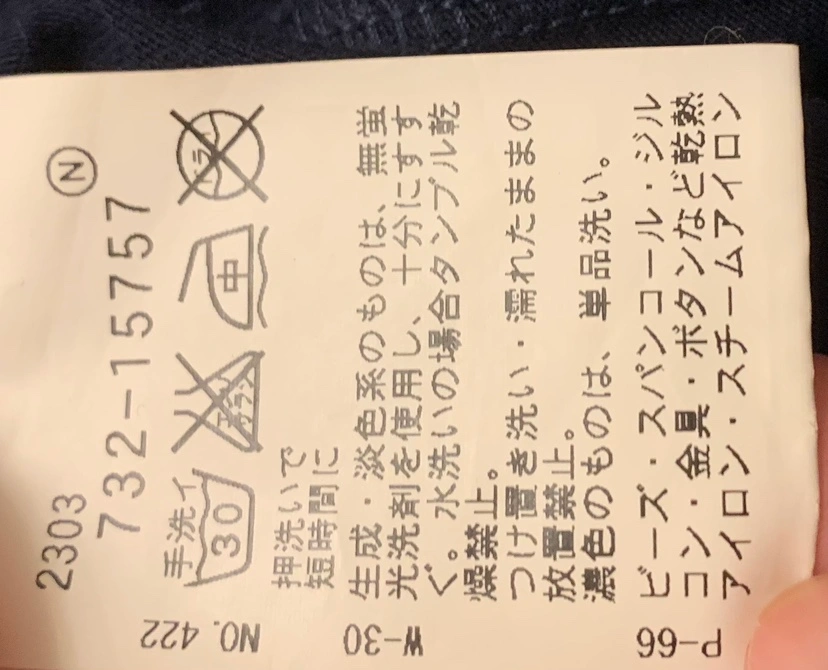 2303
Ⓝ
732-15757
手洗イ
30
エンソサラシ
中
ドライ
NO. 422
押洗いで
短時間に
W-30
生成・淡色系のものは、無蛍
光洗剤を使用し、十分にすす
ぐ。水洗いの場合タンブル乾
燥禁止。
つけ置き洗い・濡れたままの
放置禁止。
濃色のものは、単品洗い。
P-66
ビーズ・スパンコール・ジル
コン・金具・ボタンなど乾熱
アイロン・スチームアイロン